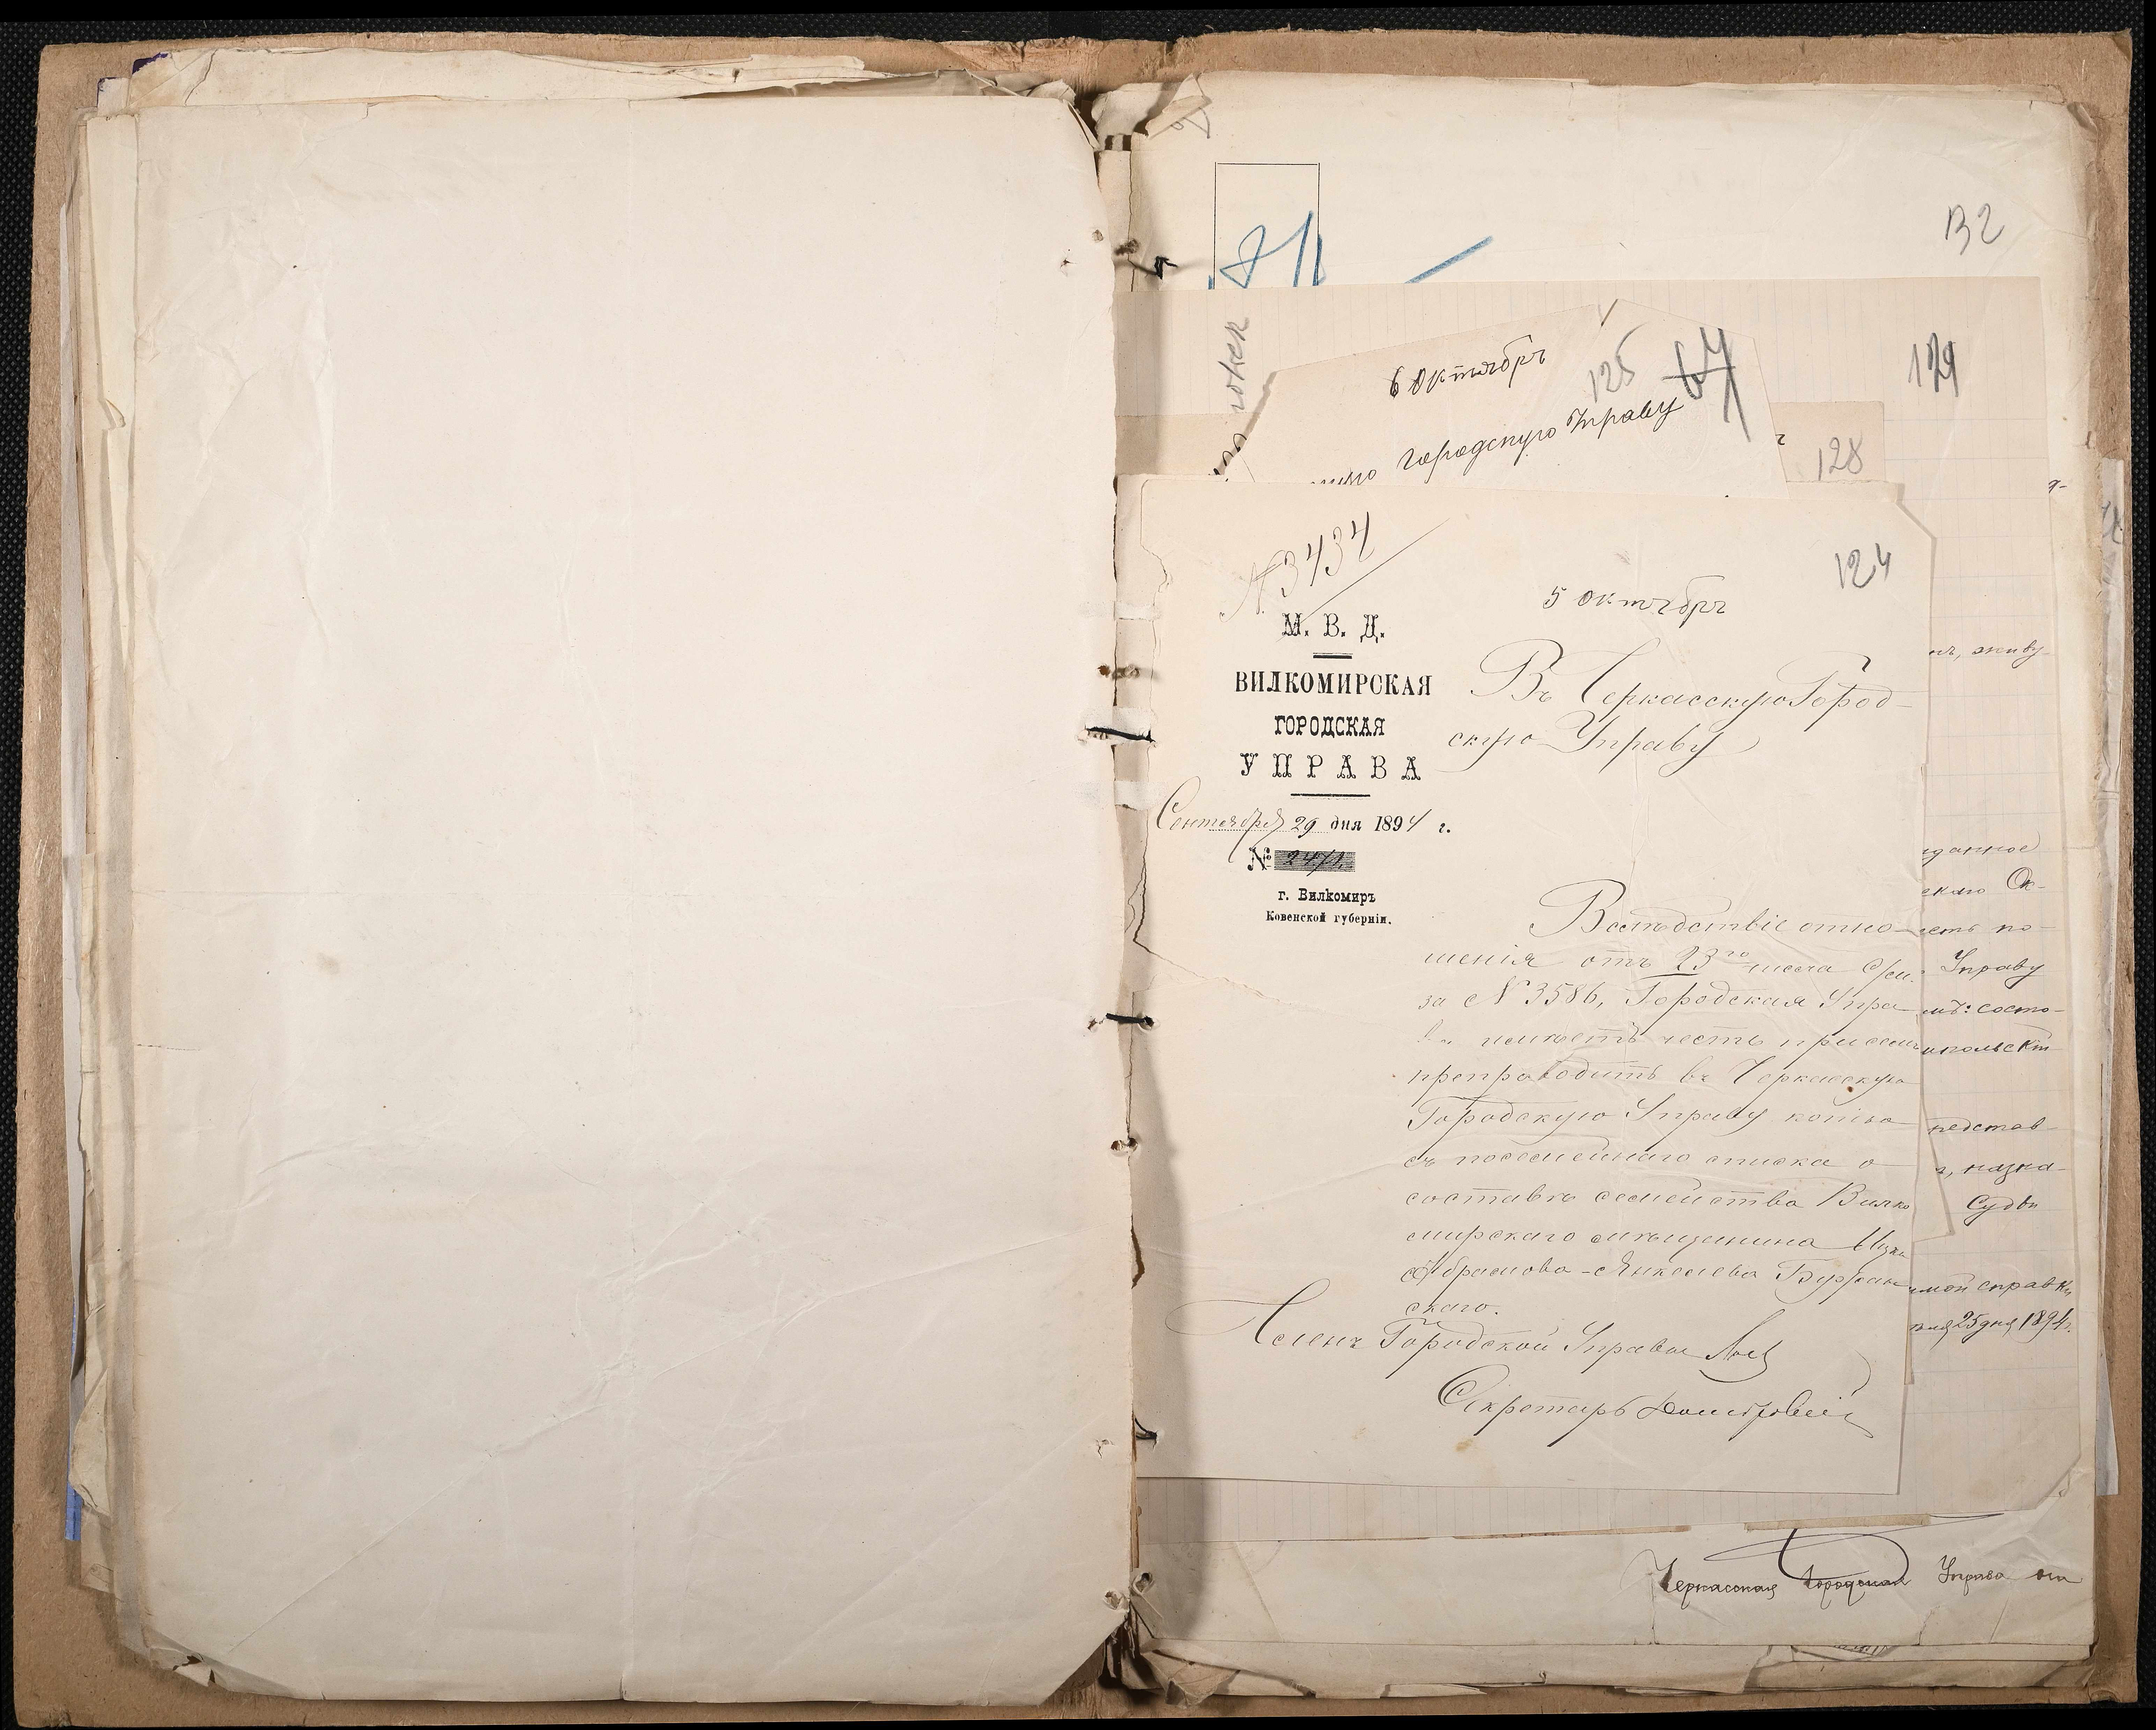 132
129
6 Октябръ
125
67
Городскую Управу
128
124
N 3434
5 Октябръ
М. В. Д.
ВИЛКОМИРСКАЯ
ГОРОДСКАЯ
УПРАВА
Сентября 29 дня 1894 г.
№ 2471
г. Вилкомиръ
Ковенской губерніи.
Въ Черкасскую Город-
скую Управу
Вслѣдствіе отно-
шенія отъ 23го числа с/м.
за N 3586, Городская Упра
ва имѣетъ честь при семъ
препроводить въ Черкасскую
Городскую Управу копію
съ посемейнаго списка о
составѣ семейства Вилко
мирскаго мѣщанина Ицки
Абрамова-Янкелева
скаго.
Членъ Городской Управы
Секретарь
живу-
данное
скаго Ок-
есть по-
Управу
мъ: состо-
никольскій
недстав-
назна-
Судьи
мой справки
25 дня 1894 г.
Черкасская Городская Управа